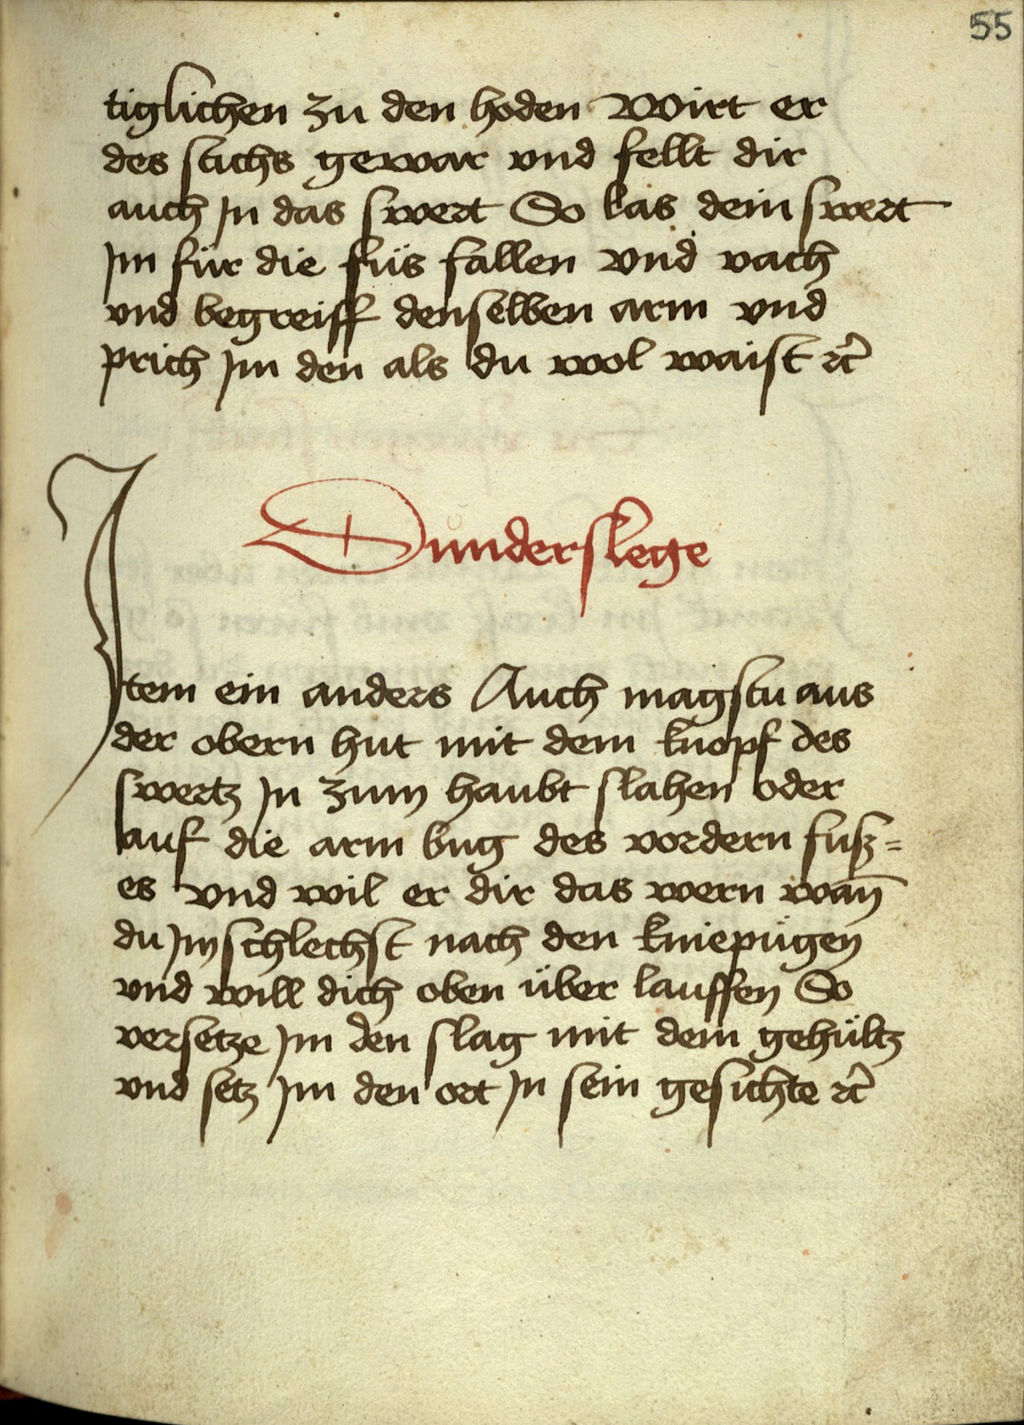 55
tiglichen zu den hoden Wirt er
des stichs gewar vnd fellt dir
auch Jn das swert So las dein swert
Jm für die füs fallen vnd vach
vnd begreiff denselben arm vnd
prich Jm den als du wol waist ꝛc̃
Dunderslege
Jtem ein anders Auch magstu aus
der obern hut mit dem knopf des
swertz Jn zum haubt slahen oder
auf die arm bug des vordern fusz=
es vnd wil er dir das wern wañ
du Jm schlechst nach den kniepügen
vnd will dich oben über lauffen So
versetze Jm den slag mit dem gehültz
vnd setz Jm den ort Jn sein gesichte ꝛc̃